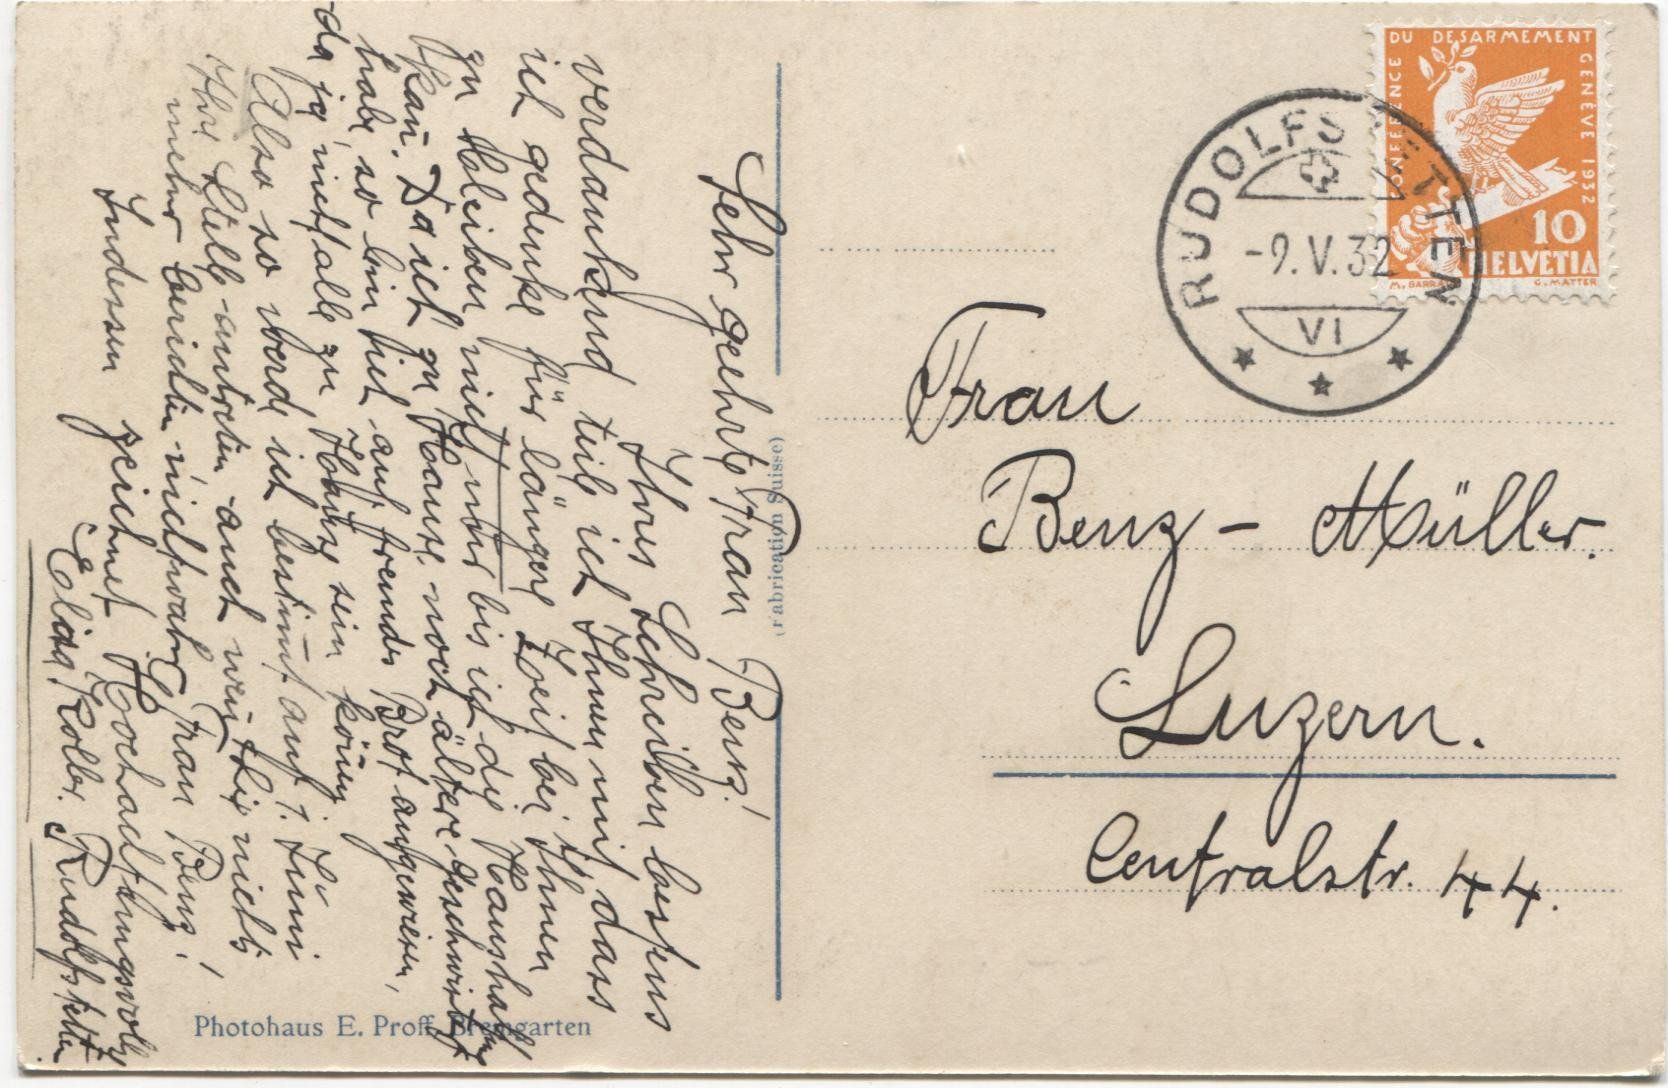 Sehr geehrte Frau Benz!
Ihres Schreiben bestens
verdankend teile ich Ihnen mit, dass
ich gedenke für längere Zeit bei Ihnen
zu bleiben nicht nur bis ich die Haushaltung
kan. Da ich zu Hause noch ältere Geschwister
habe, so bin ich auf fremdes Brot angewiesen,
da ja nicht alle zu Hause sein könen
Also so werde ich bestimt auf 1. Juni
Ihre Stelle antreten auch wen Sie nichts
mehr berichten nicht wahr Frau Benz!
Indessen zeichnet Hochachtungsvoll
Elisa Koller. Rudolfstetten
(Fabrication Suisse)
Photohaus E. Proff, Bremgarten
CONFERENCE DU DESARMEMENT GENEVE 1932
10
HELVETIA
M. BARRAUD
G. MATTER
RUDOLFSTETTEN
-9.V.32
VI
Frau
Benz - Müller.
Luzern.
Centralstr. 44.